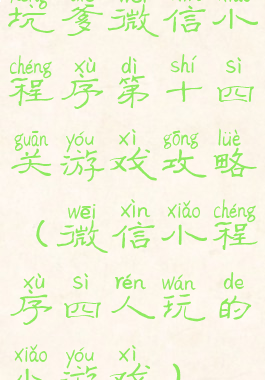 坑爹微信小
chéng xù dì shí sì
程序第十四
guān yóu xì gōng lüè
关游戏攻略
wēi xìn xiǎo chéng
（微信小程
xù sì rén wán de
序四人玩的
xiǎo yóu xì
小游戏）